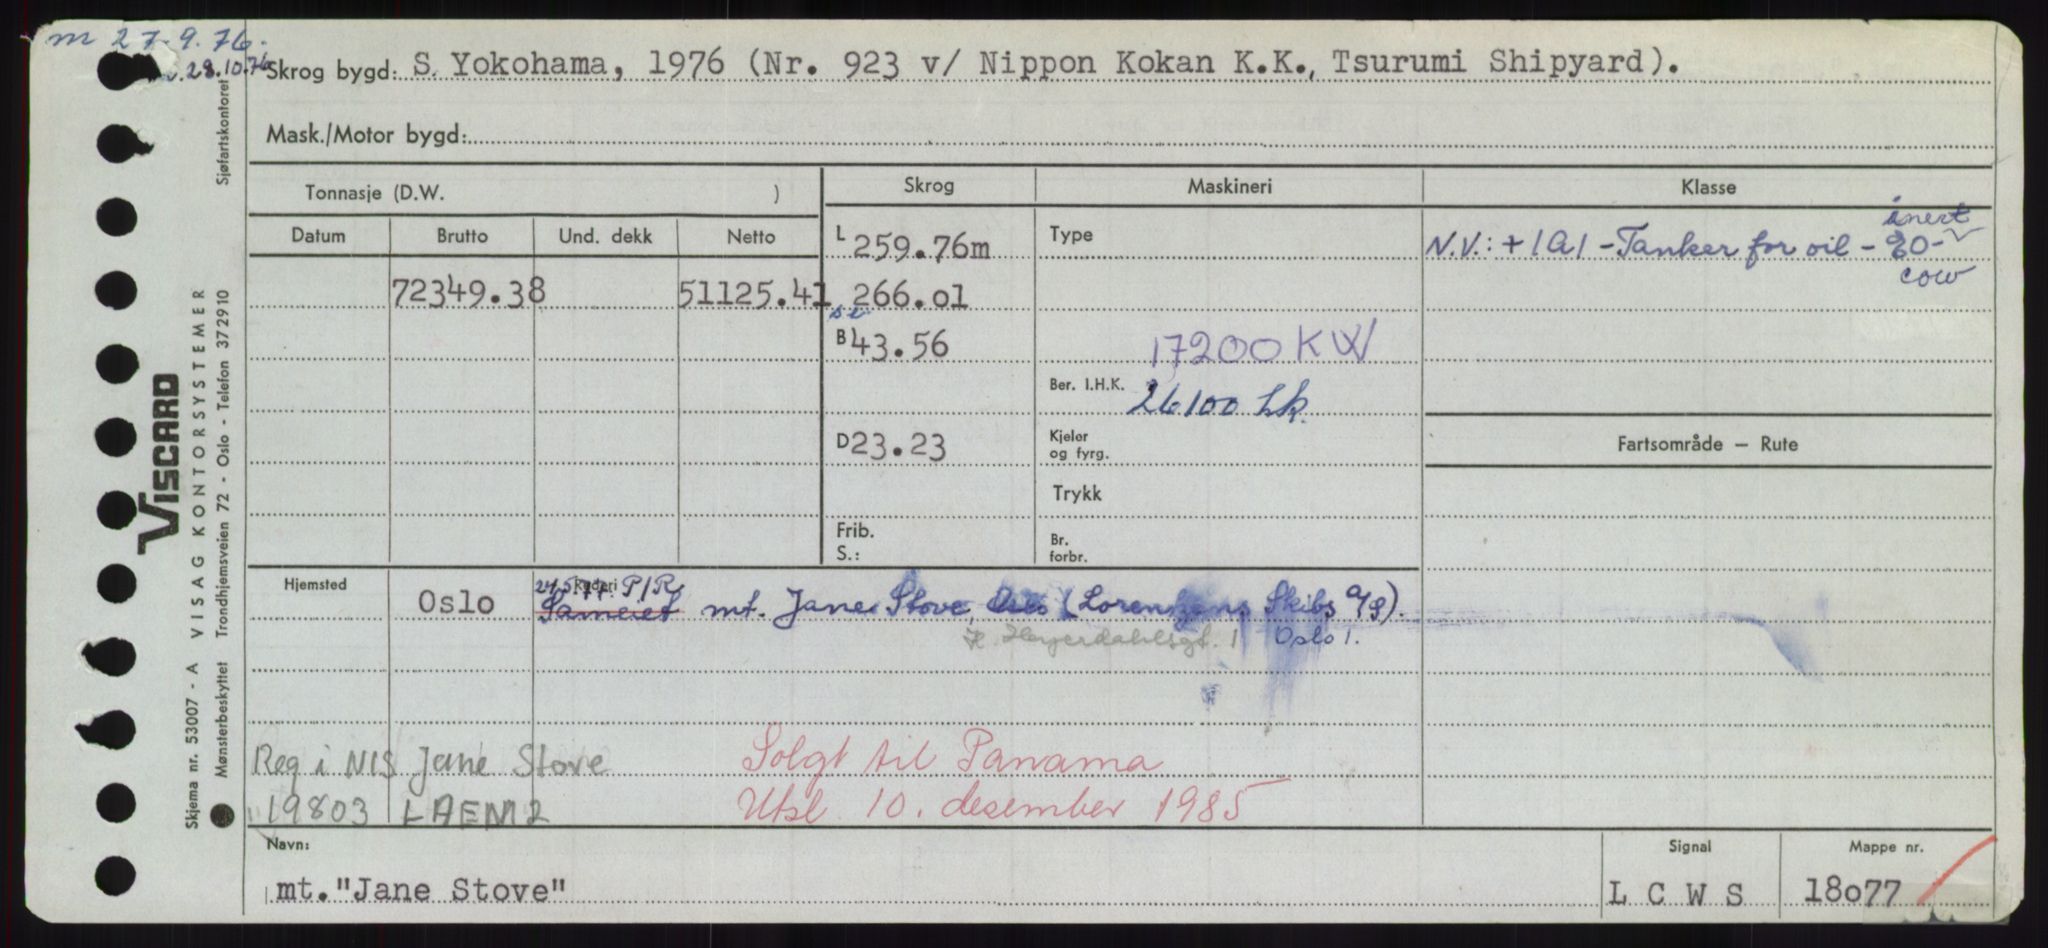 m 27.9.76.
28.10.76
Skrog bygd: S. Yokohama, 1976 (Nr. 923 v/ Nippon Kokan K.K., Tsurumi Shipyard).
Mask./Motor bygd:
Tonnasje (D.W. )
Skrog
Maskineri
Klasse
Datum
Brutto
Und. dekk
Netto
L 259.76m
Type
inert
N.V.: + 1A1 - Tanker for oil - EO -
cow
72349.38
51125.41
266.o1
B 43.56
17200 KW
Ber. I.H.K.
26100 hk.
D 23.23
Kjeler
og fyrg.
Fartsområde — Rute
Trykk
Frib.
S.:
Br.
forbr.
Hjemsted
Oslo
Rederi
24.5.77. P/R
Sameiet mt. Jane Stove, Oslo (Lorentzens Skibs A/S).
H. Heyerdahlsgt. 1 Oslo 1.
Reg i NIS Jane Stove
19803 LAEM2
Solgt til Panama
Utsl. 10. desember 1985
Navn:
mt. "Jane Stove"
Signal
L C W S
Mappe nr.
18o77
Skjema nr. 53007 - A VISAG KONTORSYSTEMER
Mønsterbeskyttet Trondhjemsveien 72 - Oslo - Telefon 372910
Sjøfartskontoret
VISCARD